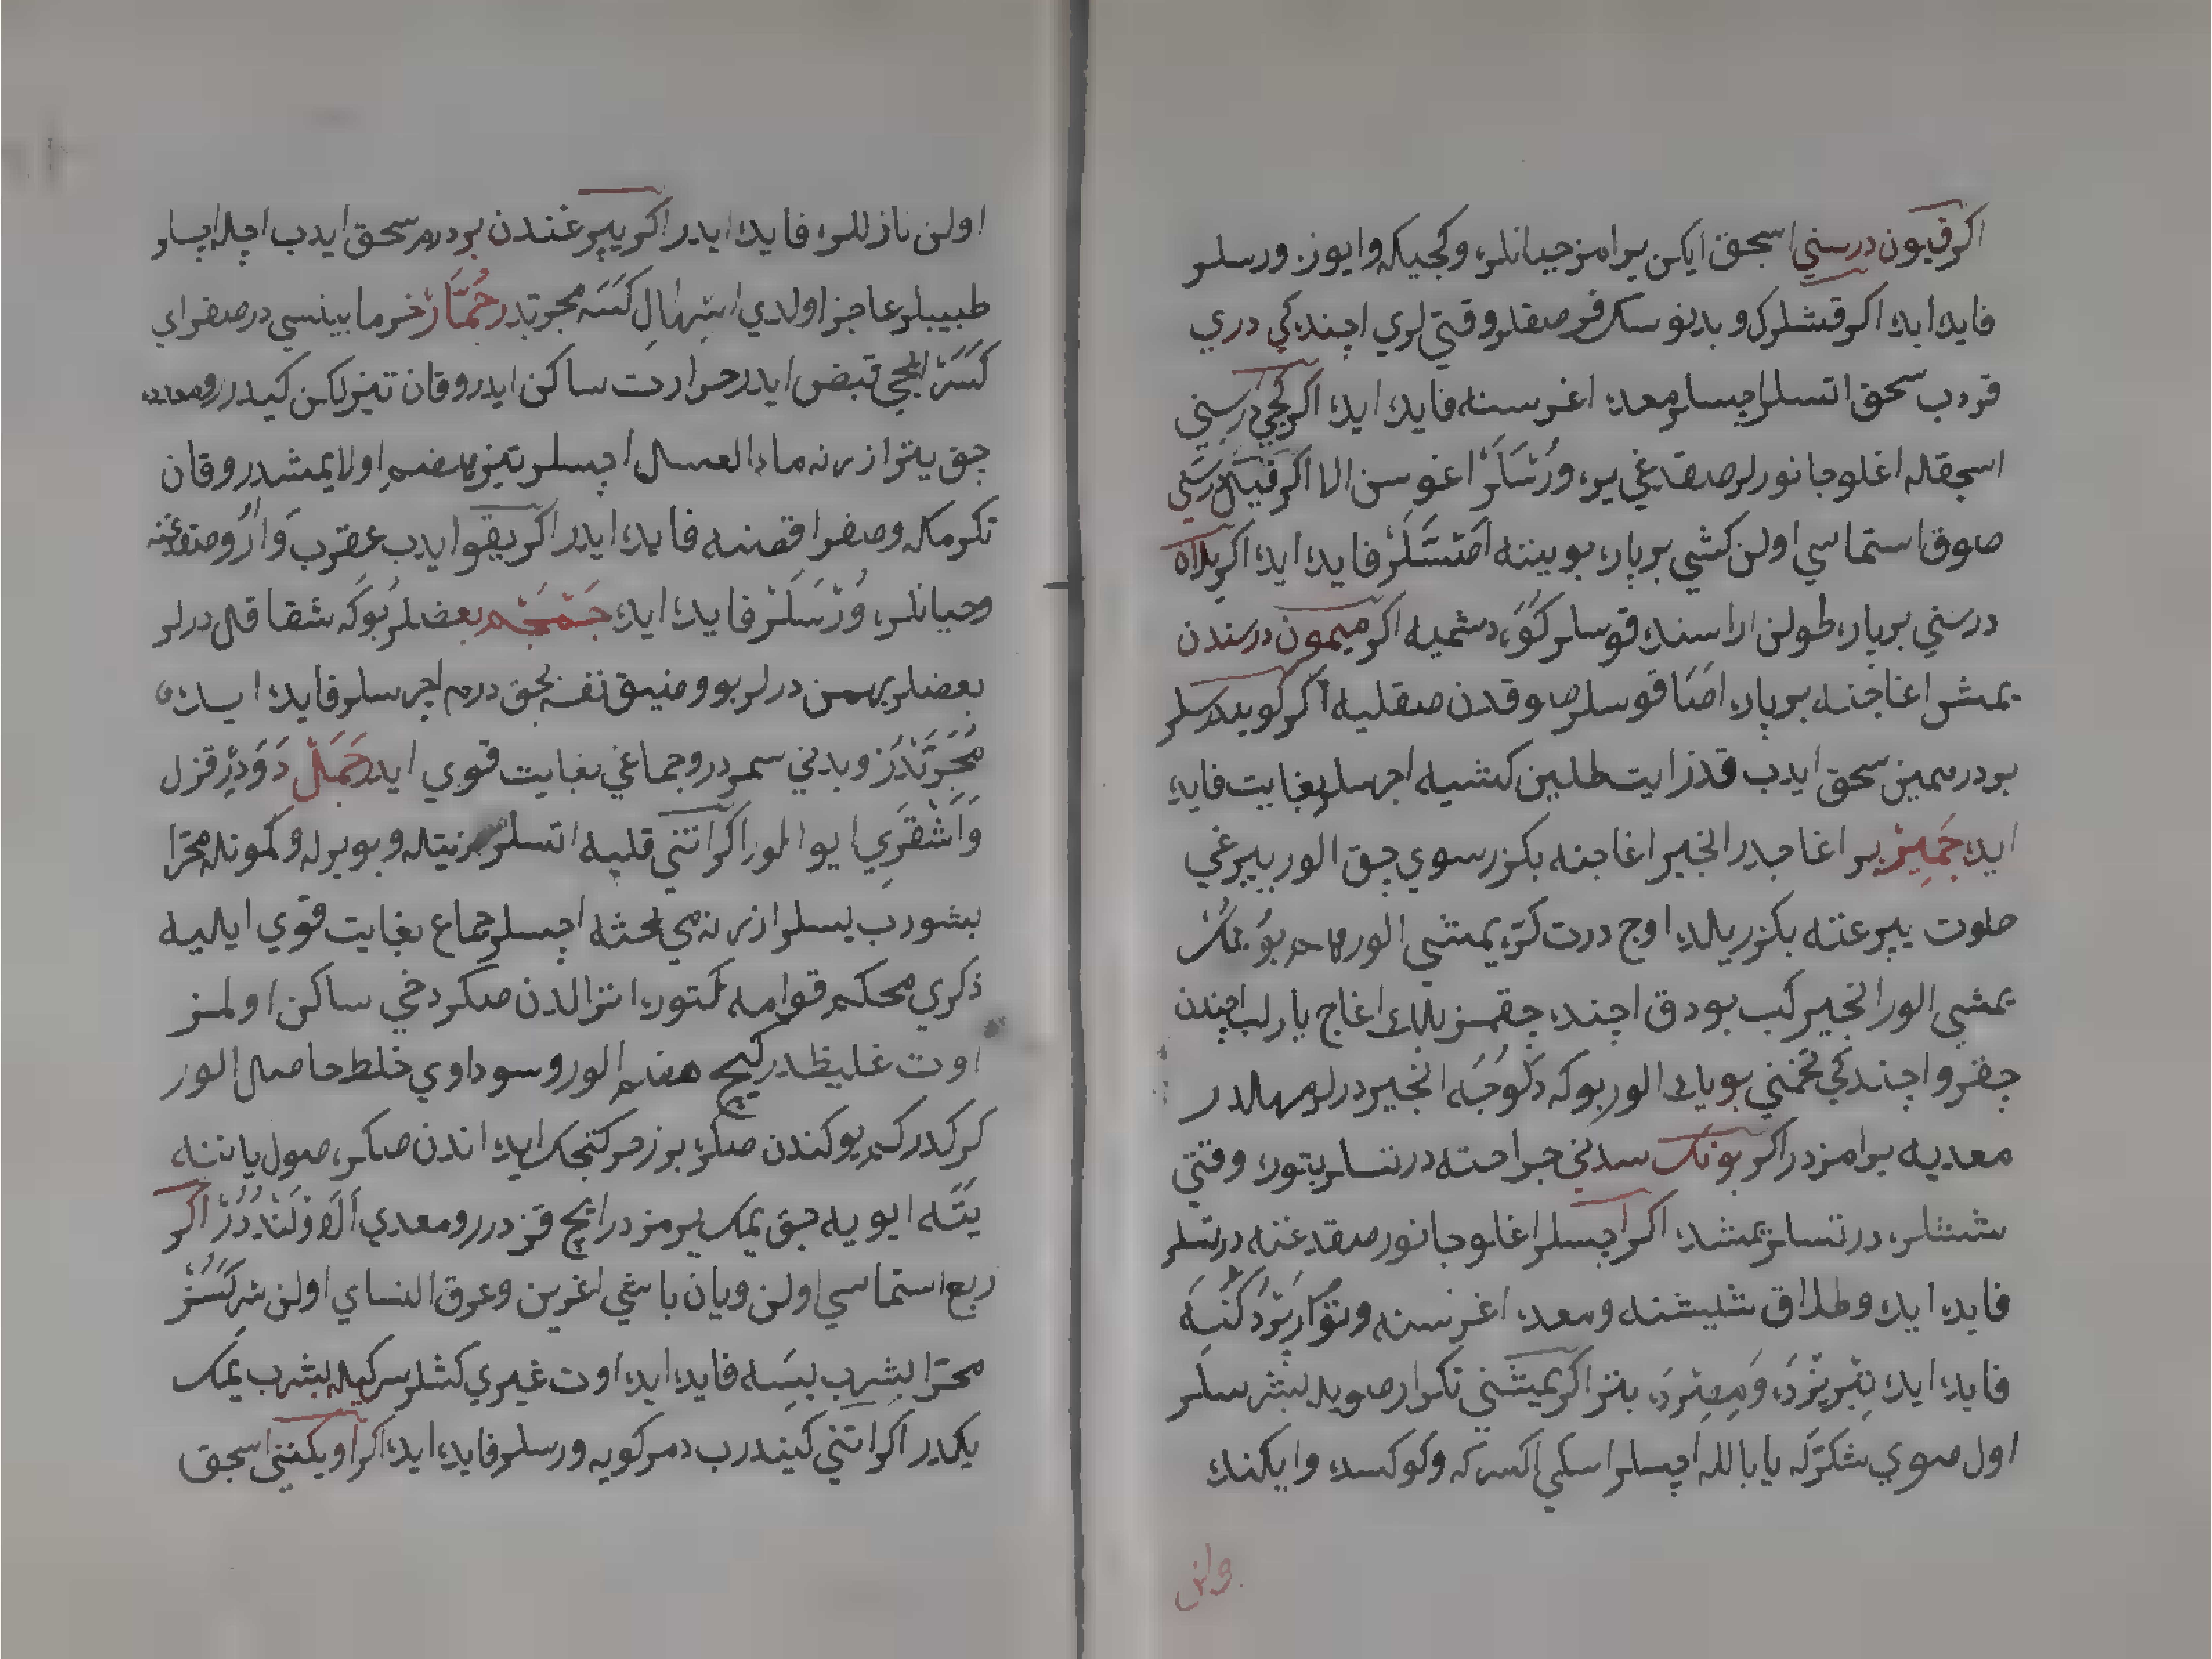 اكر قيون درسني اسجق ايكن يرامز جيانلره وكجيكه وايوز ورسلر
فايده ايده اكر قشلرك و بدنو سك قرصقلر وقتي لري اچنده كي دري
قردب سحق اتسلر اچسلر معده اغرسنه فايده ايده اكر كجي درسني
اسجقله اغلو جانورلر صقدغي يره ورسلر اغوسن الا اكر فيل درسني
صوق استماسي اولن كشي بر پاره بوينه اصتسلر فايده ايده اكر بلاه
درسني بر پاره طولن اراسنده قوسلر كوه دشميه اكر ميمون درسندن
يمش اغاجنه بر پاره اصا قوسلر صوقدن صقليه اكر كويندرسلر
بودرممين سحق ايدب قدز ايت طلين كشيه اجرسلر بغايت فايده
ايده جميز بر اغاجدر انجير اغاجنه بكزر سوي چق الور يپرغي
طوت يپرغنه بكزر يلده اوج درت كز يمشي الور
يمشي الور انجير كب بودق اچنده چقمز بلك اغاج يارلب اچندن
چقر واچنده كي تخمني بويله الور بوكه دلوجه انجير درلر مسهلدر
معديه يرامزدر اكر بونك سدني جراحته درتسلر بتوره وقتي
شيشلره درتسلر يمشده اكر اچسلر اغلو جانور صقدغنه درتسلر
فايده ايده وطلاق شيشنه ومعده اغرسنه
فايده ايده اكر يمشني تكرار صويله بشرسلر
اول صوي شكرله يا باللە اچسلر اسكي اكسركه وكوكسده وايكنده
ولن
اولن نازللره فايده ايدر اكر يپرغندن بر درم سحق ايدب اچلر اچسلر
طبيبلر عاجز اولدي اسهال كسه مجربدر جمار خرما بينسي در صفراي
كسر ايچي قبض ايدر حرارت ساكن ايدر وقان تيزلكن كيدرر ومعده
چق يتر ازرنه ماء العسل اچسلر تيز هضم اولا يمشدر وقان
تكرمكه وصفرا قصنه فايده ايدر اكر يقو ايدب عقرب وارو صقدغنه
وحيانلره ورسلر فايده ايده جمجم بعضلر بوكه شقاقل درلر
بعضلر بهمن درلر بوو ضيق نفسه بجق درم اچرسلر فايده ايده
مجربدر وبدني سمردر وجماغي بغايت قوي ايدر جمل دوه در قزل
واشقري ايو الور اكر اتني قليه اتسلر زيتله وبوبرله وكمونله محرا
بشورب يسلر ازرنه مي بحشه اچسلر جماع بغايت قوي ايليه
ذكري محكم قوامه كتوره انزالدن صكره دخي ساكن اولمز
اوت غليظدر كيج هضم الور وسوداوي خلط حاصل الور
كركدركه يوكندن صكره بر زحركتجك ايده اندن صكره صول ياننه
يته ايو يه چق يمك يرمز در ايچ قزدرر ومعدي الاولندرر اكر
ربع استماسي اولن ويان باشي اغرين وعرق النساي اولن
محرا بشرب يسه فايده ايده اوت غيري كشلر سركيله بشرب يمك
يكدر اكر اتني كيندرب دمركويه ورسلر فايده ايده اكر اويكنني اسجق